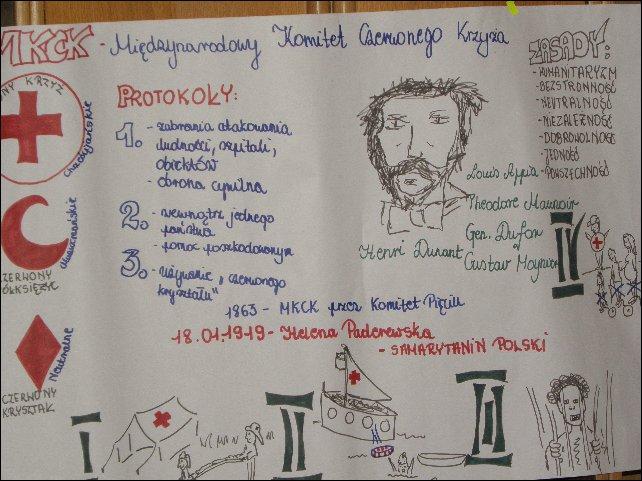 MKCK - Międzynarodowy Komitet Czerwonego Krzyża
NY KRZYŻ
Chrześcijańskie
CZERWONY
ÓŁKSIĘŻYC
Muzułmańskie
CZERWONY
KRYSZTAŁ
Neutralne
PROTOKOŁY:
1. - zabrania atakowania
ludności, szpitali,
obiektów
- obrona cywilna
2. - wewnątrz jednego
państwa
- pomoc poszkodowanym
3. - uznanie „czerwonego
kryształu"
Henri Dunant
Louis Appia
Theodore Maunoir
Gen. Dufour
Gustav Moynier
ZASADY:
- HUMANITARYZM
- BEZSTRONNOŚĆ
- NEUTRALNOŚĆ
- NIEZALEŻNOŚĆ
- DOBROWOLNOŚĆ
- JEDNOŚĆ
- POWSZECHNOŚĆ
1863 - MKCK przez Komitet Pięciu
18.01.1919 - Helena Paderewska
- SAMARYTANIN POLSKI
IV
I
II
III